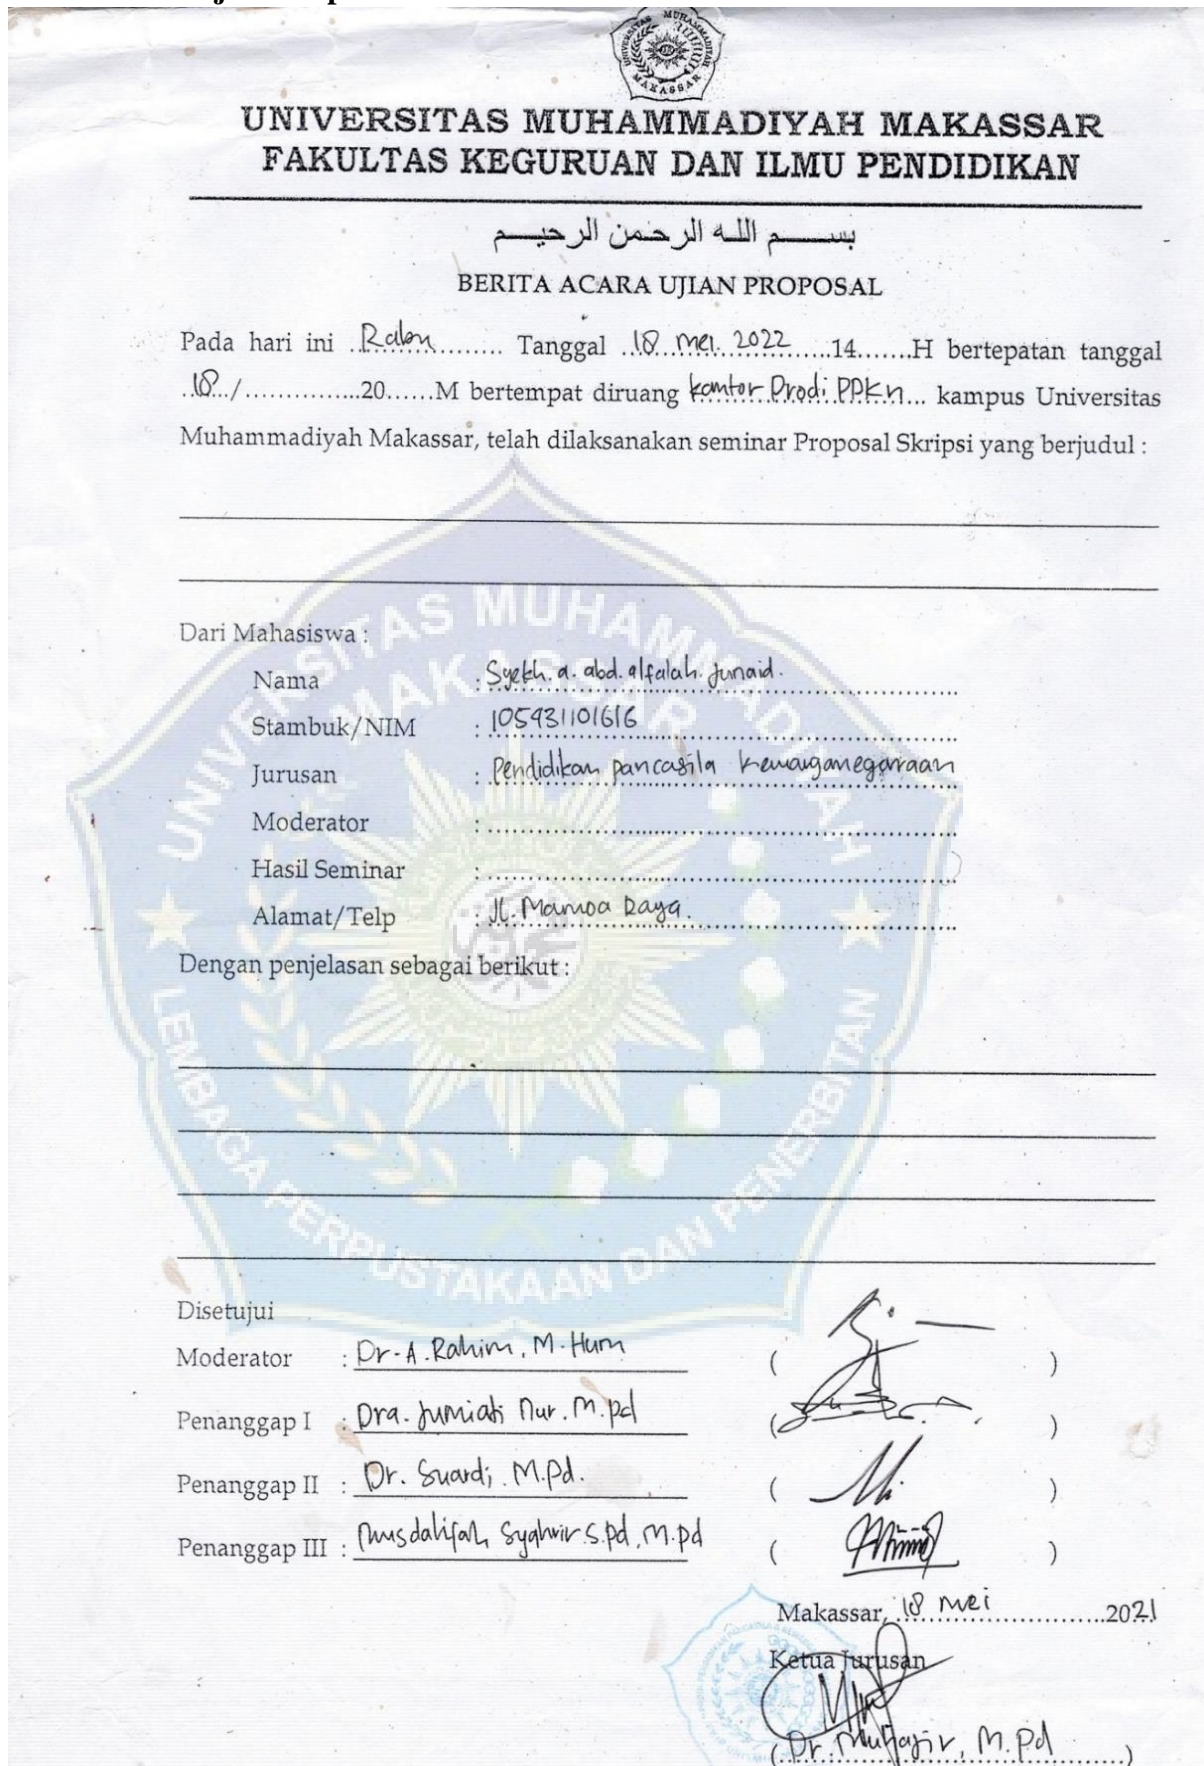 UNIVERSITAS MUHAMMADIYAH MAKASSAR
UNIVERSITAS MUHAMMADIYAH MAKASSAR
FAKULTAS KEGURUAN DAN ILMU PENDIDIKAN
بسم الله الرحمن الرحيم
BERITA ACARA UJIAN PROPOSAL
Pada hari ini ..Rabu......... Tanggal ..18 mei. 2022......14.......H bertepatan tanggal
..18../...............20......M bertempat diruang kantor Prodi PPKn... kampus Universitas
Muhammadiyah Makassar, telah dilaksanakan seminar Proposal Skripsi yang berjudul :
Dari Mahasiswa :
Nama : Syekh. a. abd. alfalah. Junaid.
Stambuk/NIM : 105431101616
Jurusan : Pendidikan pancasila kewarganegaraan
Moderator :
Hasil Seminar :
Alamat/Telp : Jl. Mamoa Raya.
Dengan penjelasan sebagai berikut :
UNIVERSITAS MUHAMMADIYAH
MAKASSAR
LEMBAGA PERPUSTAKAAN DAN PENERBITAN
Disetujui
Moderator : Dr. A. Rahim, M. Hum ( )
Penanggap I : Dra. Jumiati Nur. M.pd ( )
Penanggap II : Dr. Suardi, M.Pd. ( )
Penanggap III : Musdalifah Syahrir S.pd, M.pd ( )
Makassar, 18 mei ............2021
Ketua Jurusan
(Dr. Muhajir, M.Pd..........)